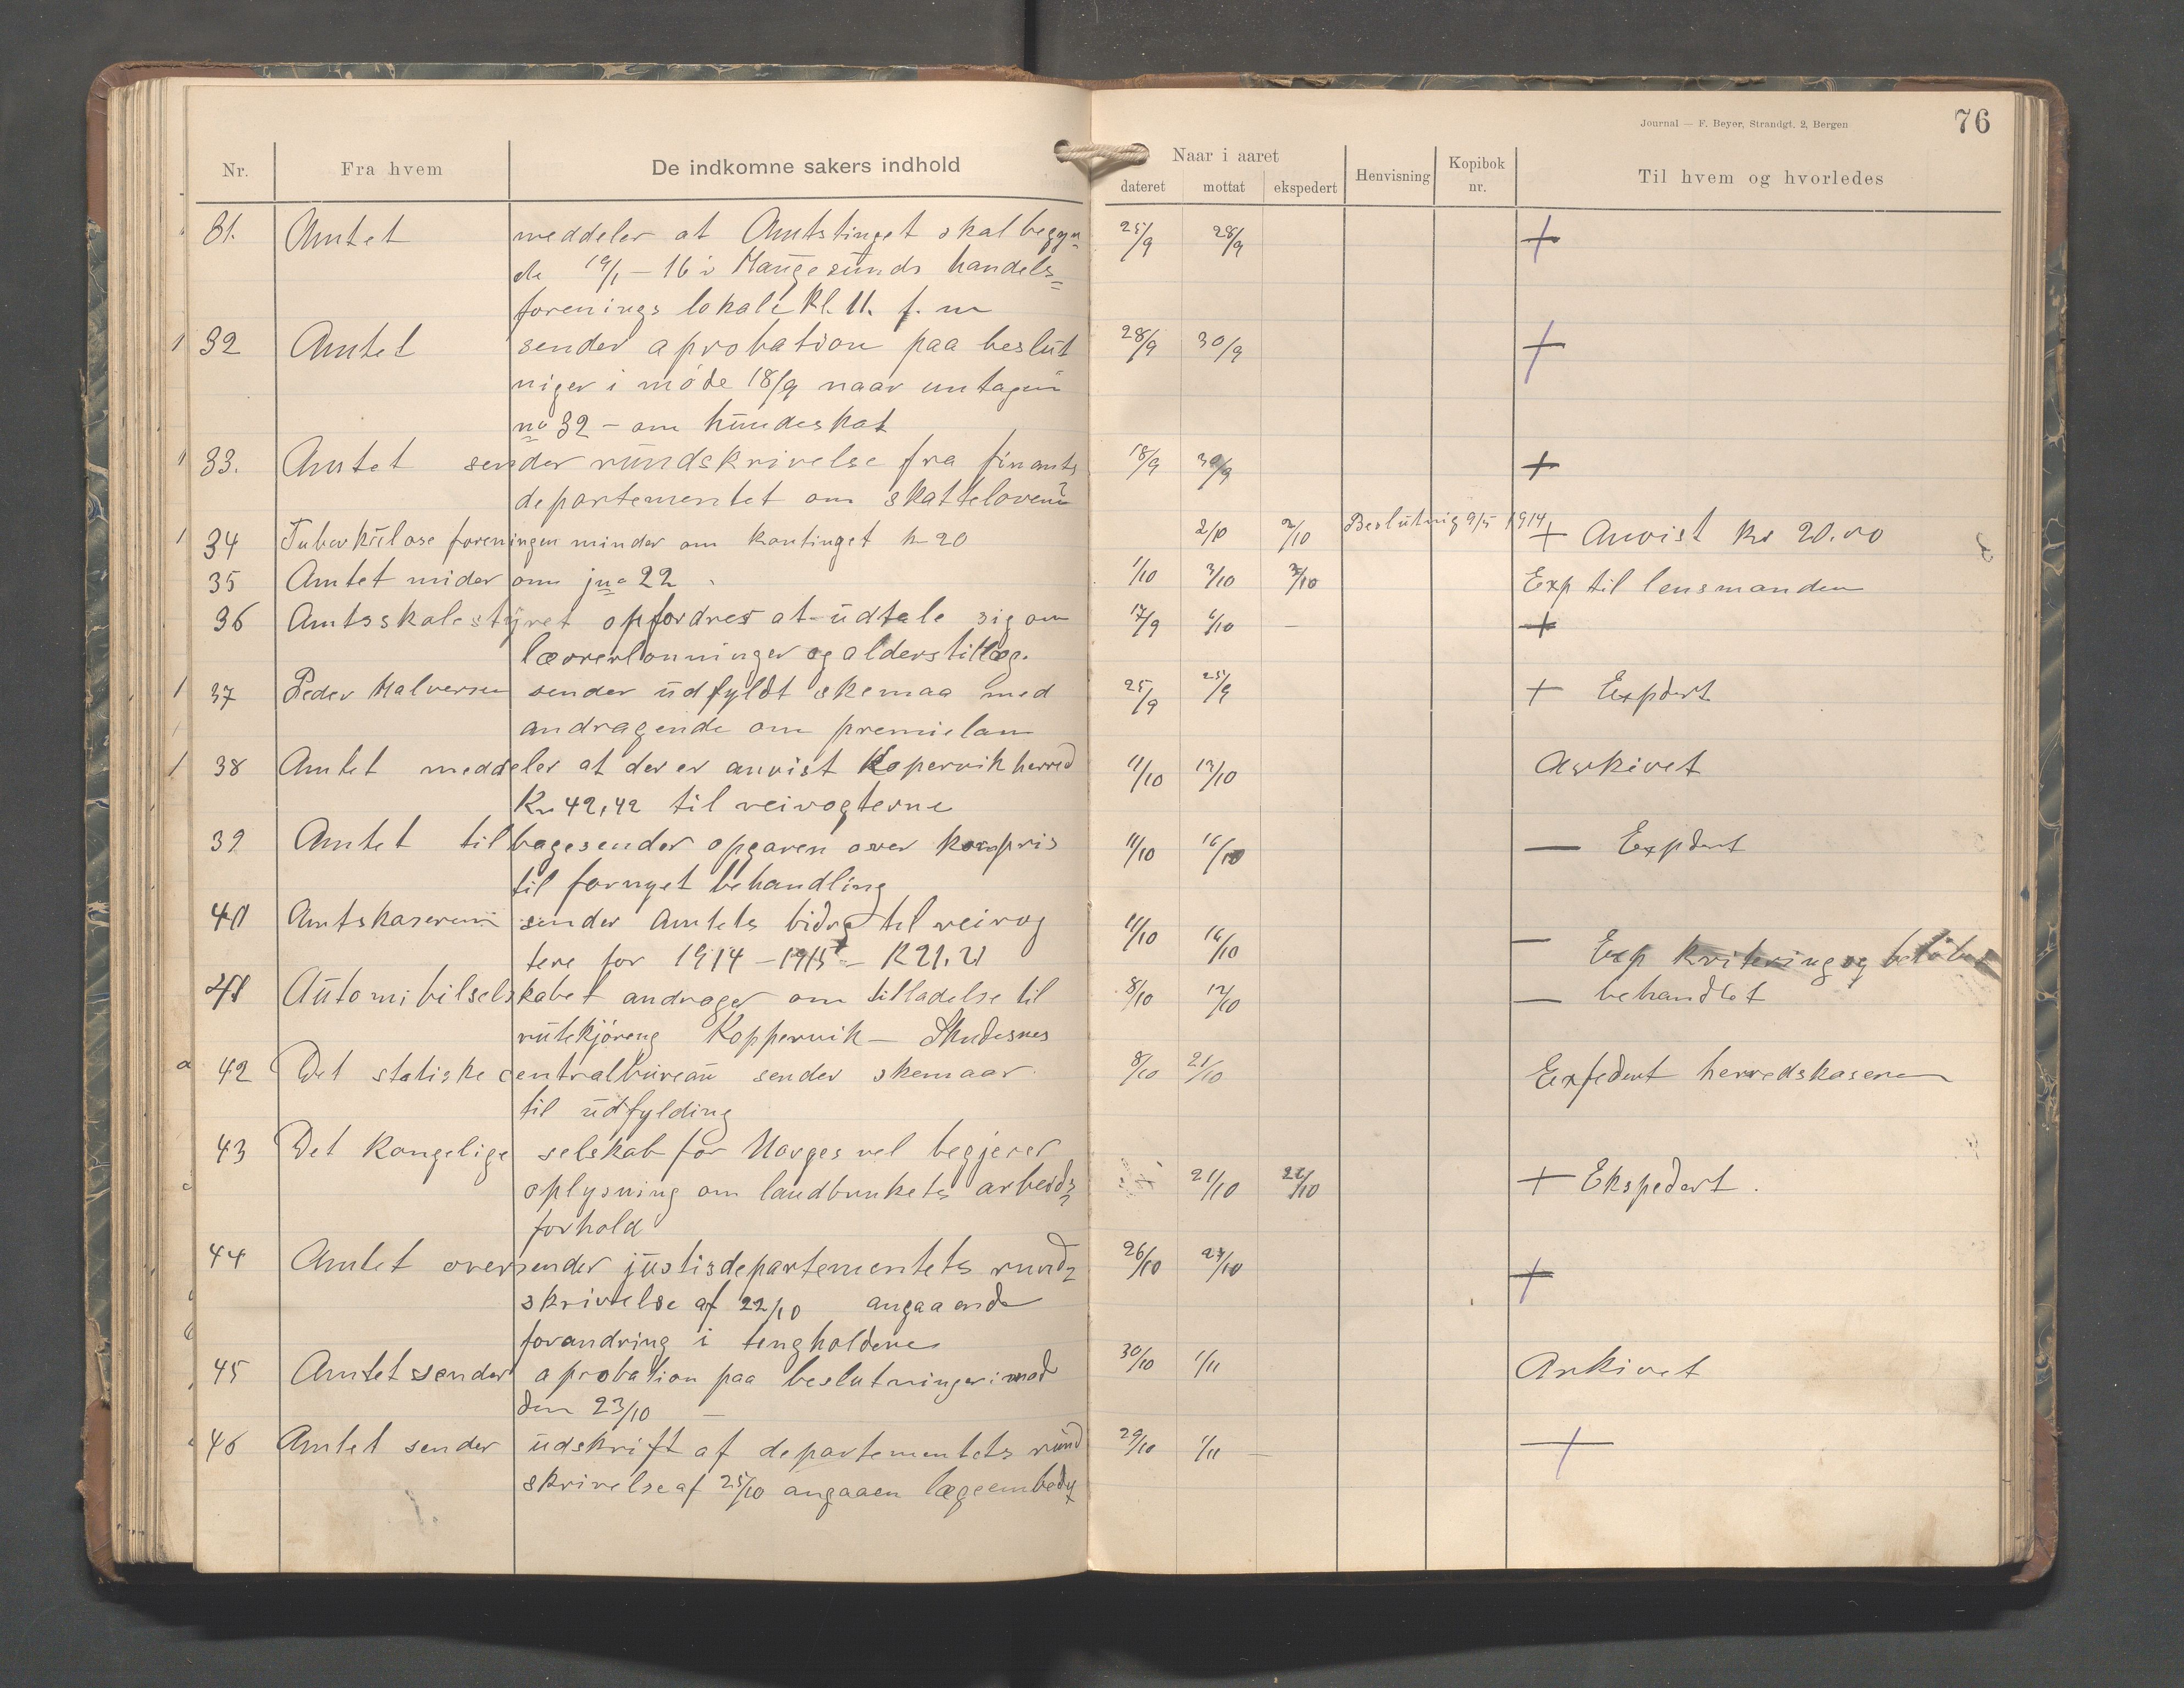 Journal — F. Beyer, Strandgt. 2, Bergen
76
Nr. Fra hvem De indkomne sakers indhold Naar i aaret dateret mottat ekspedert Henvisning Kopibok nr. Til hvem og hvorledes
31. Amtet meddeler at Amtstinget skal begyn= 25/9 28/9 +
de 19/1 – 16 i Haugesunds handels=
forenings lokale kl. 11. f. m
32 Amtet sender aprobation paa beslut 28/9 30/9 +
niger i møde 18/9 naar untagen
no 32 – om hundeskat
33. Amtet sender rundskrivelse fra finants 18/9 30/9 +
departementet om skatteloven
34 Tuberkulose foreningen minder om kontinget kr 20 2/10 2/10 Beslutnig 9/5 1914 + Anvist kr 20.00
35 Amtet mider om jno 22 1/10 3/10 3/10 Exp til lensmanden
36 Amtsskolestyret opfordres at udtale sig om 17/9 6/10 – +
lærrerlønninger og alderstillæg.
37 Peder Halversen sender udfyldt skemaa med 25/9 25/9 + Expdert
andragende om premielaan
38 Amtet meddeler at der er anvist Kopervik herred 11/10 13/10 Arkivet
Kr 42,42 til veivogterne
39 Amtet tilbagesender opgaven over kornpris 11/10 16/10 — Expdert
til fornyet behandling
40 Amtskasereren sender Amtets bidrag til veivog 11/10 16/10 — Exp kvitering og beløbet
tere for 1914 – 1915 – K 21.21
41 Automibilselskabet andrager om tilladelse til 8/10 12/10 — behandlet
rutekjøreng Koppervik – Skudesnes
42 Det statiske centralbureau sender skemaar 8/10 21/10 Expedert herredskaseren
til udfylding
43 Det kongelige selskab for Norges vel begjerer
oplysning om landbrukets arbeids= 21/10 22/10 + Ekspedert.
forhold
44 Amtet oversender justisdepartementets rund= 26/10 27/10 +
skrivelse af 22/10 angaaende
forandring i tingholdene
45 Amtet sender aprobation paa beslutninger i mød 30/10 1/11 Arkivet
den 23/10 –
46 Amtet sender udskrift af departementets rund 29/10 1/11 – +
skrivelse af 25/10 angaaen lægeembedt